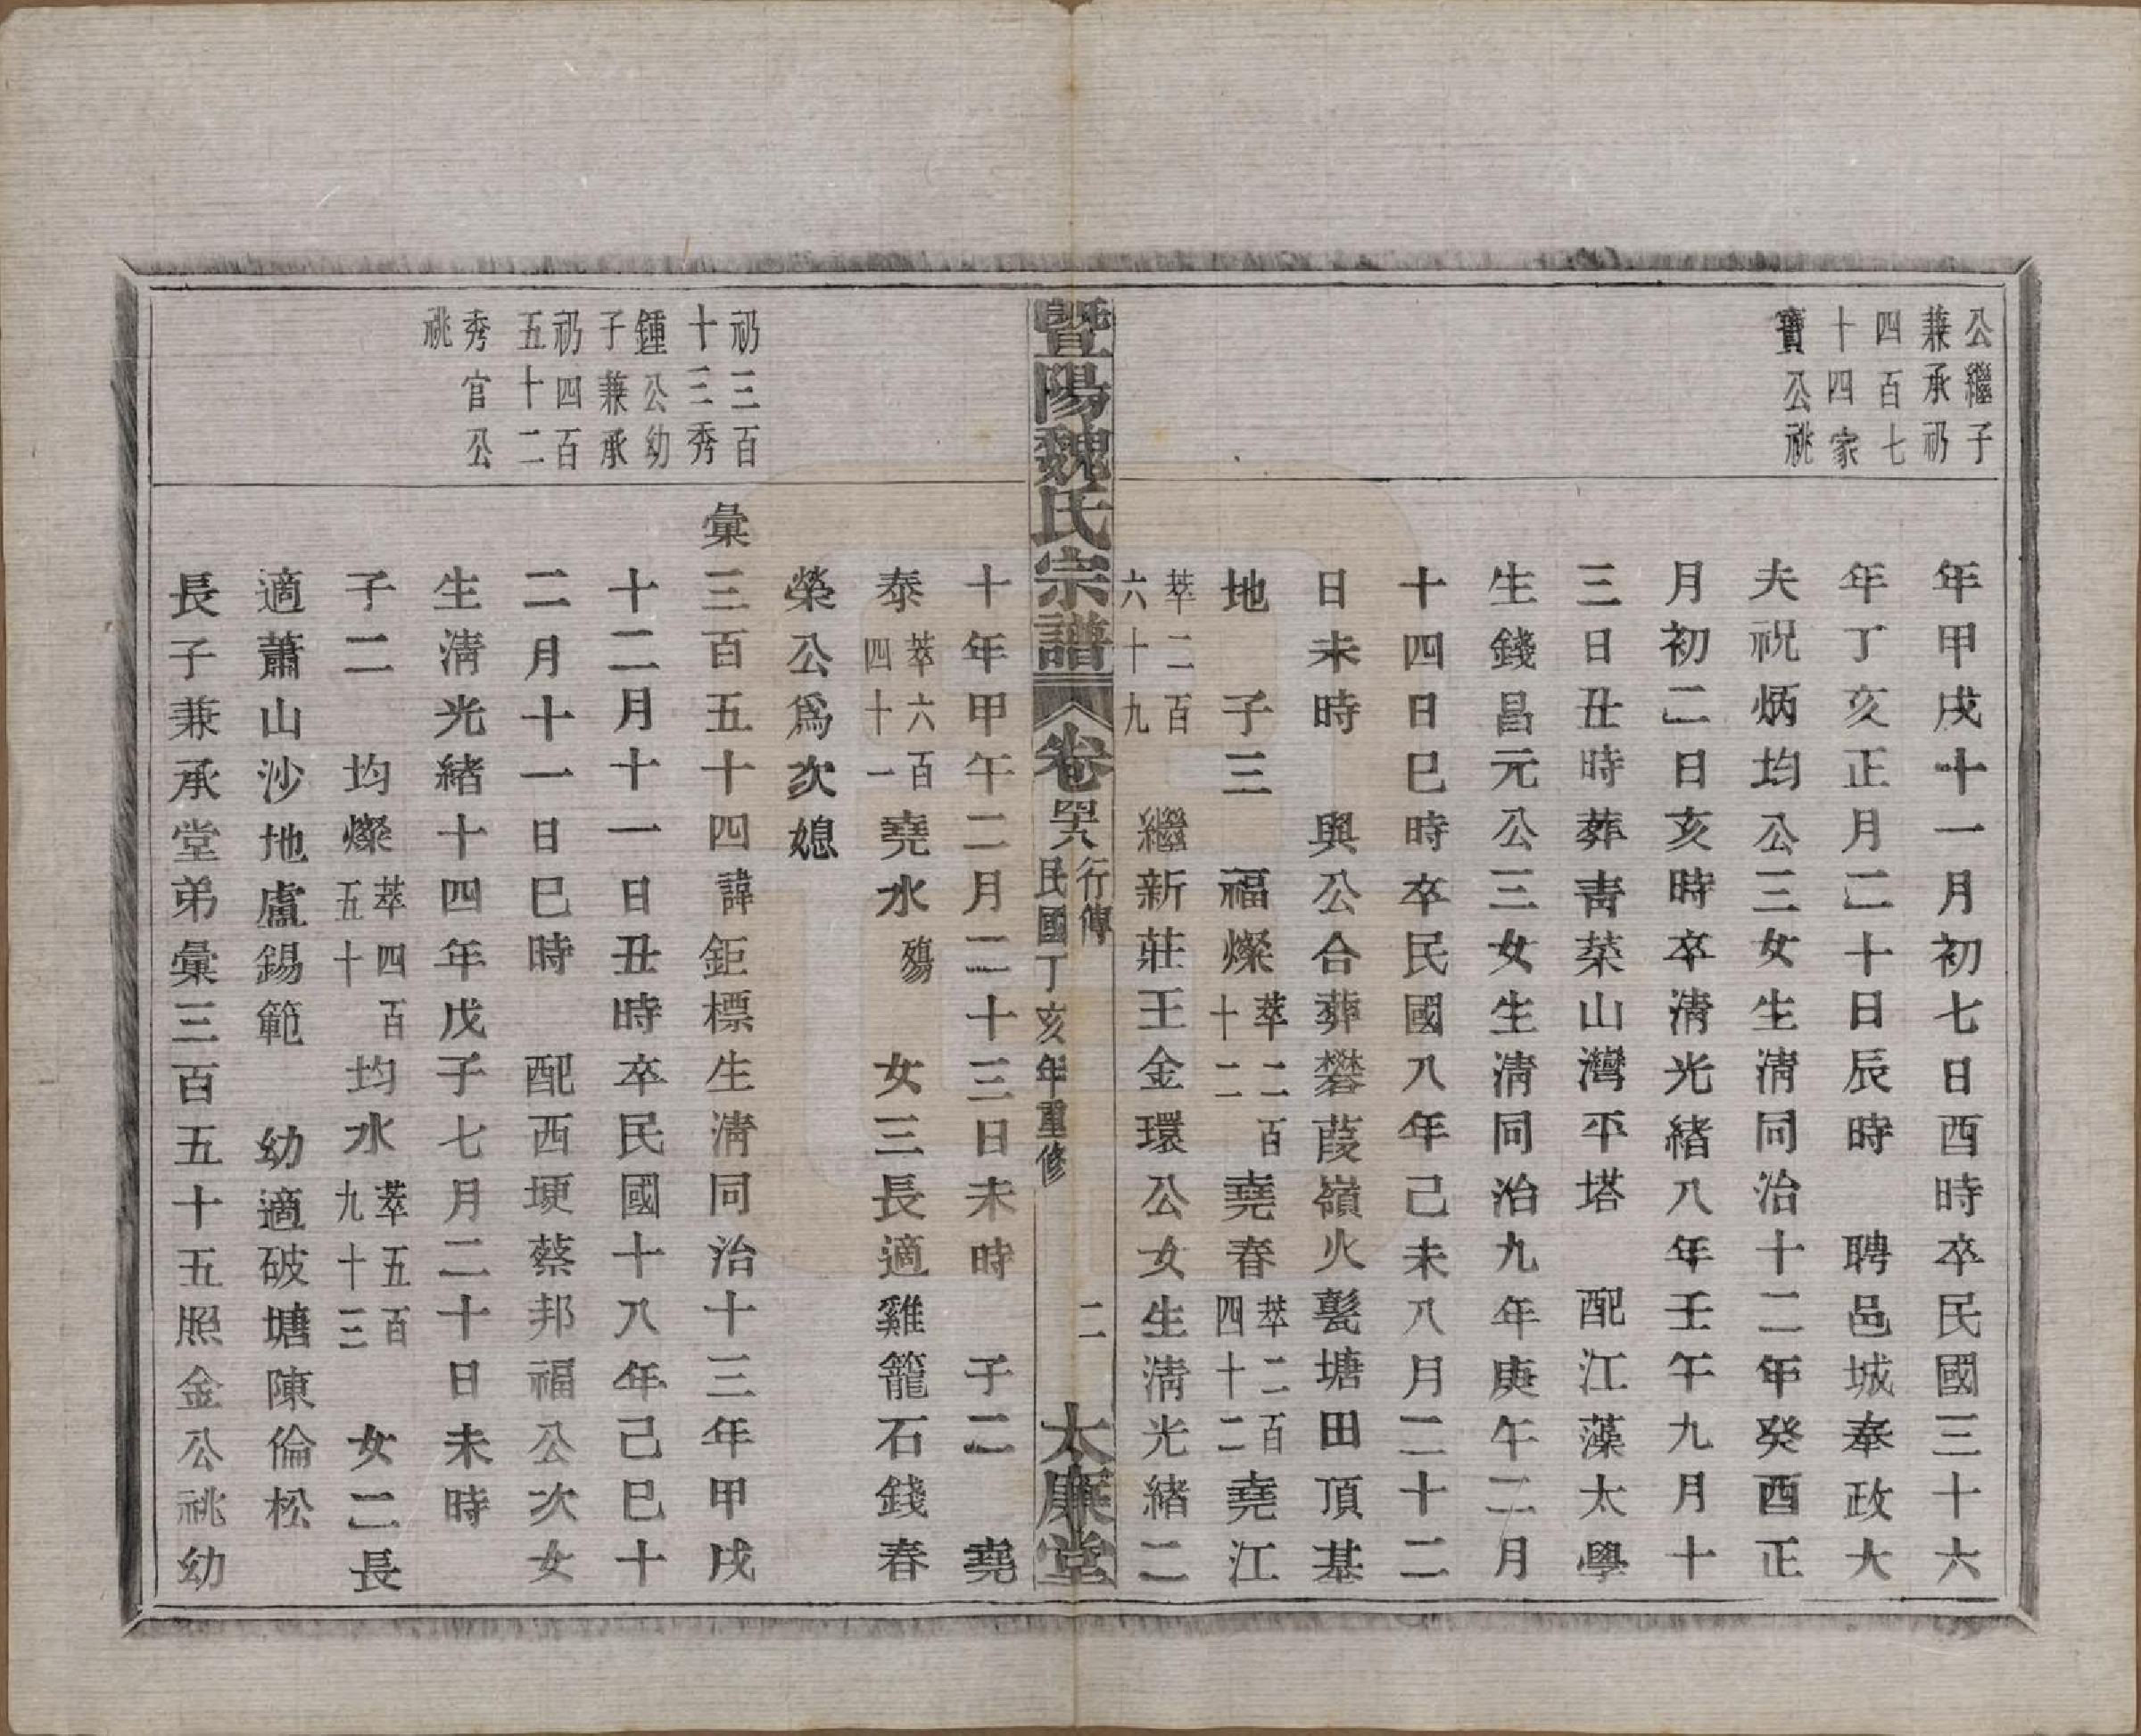 公繼子
兼承礽
四百七
十四家
寶公祧
年甲戌十一月初七日酉時卒民國三十六
年丁亥正月二十日辰時　聘邑城奉政大
夫祝炳均公三女生清同治十二年癸酉正
月初二日亥時卒清光緒八年壬午九月十
三日丑時葬青菜山灣平塔　配江藻太學
生錢昌元公三女生清同治九年庚午二月
十四日巳時卒民國八年己未八月二十二
日未時　與公合葬礬葭嶺火甏塘田頂基
地　子三　福燦萃二百十二　堯春萃二百四十二　堯江
萃二百六十九　繼新莊王金環公女生清光緒二
暨陽魏氏宗譜　卷四六　行傳　民國丁亥年重修　二　大廉堂
十年甲午二月二十三日未時　子二　堯
泰萃六百四十一　堯水殤　女三長適雞籠石錢春
榮公為次媳
礽三百
十三秀
鍾公幼
子兼承
礽四百
五十二
秀官公
祧
彙三百五十四諱鉅標生清同治十三年甲戌
十二月十一日丑時卒民國十八年己巳十
二月十一日巳時　配西埂蔡邦福公次女
生清光緒十四年戊子七月二十日未時
子二　均燦萃四百五十　均水萃五百九十三　女二長
適蕭山沙地盧錫範　幼適破塘陳倫松
長子兼承堂弟彙三百五十五照金公祧幼